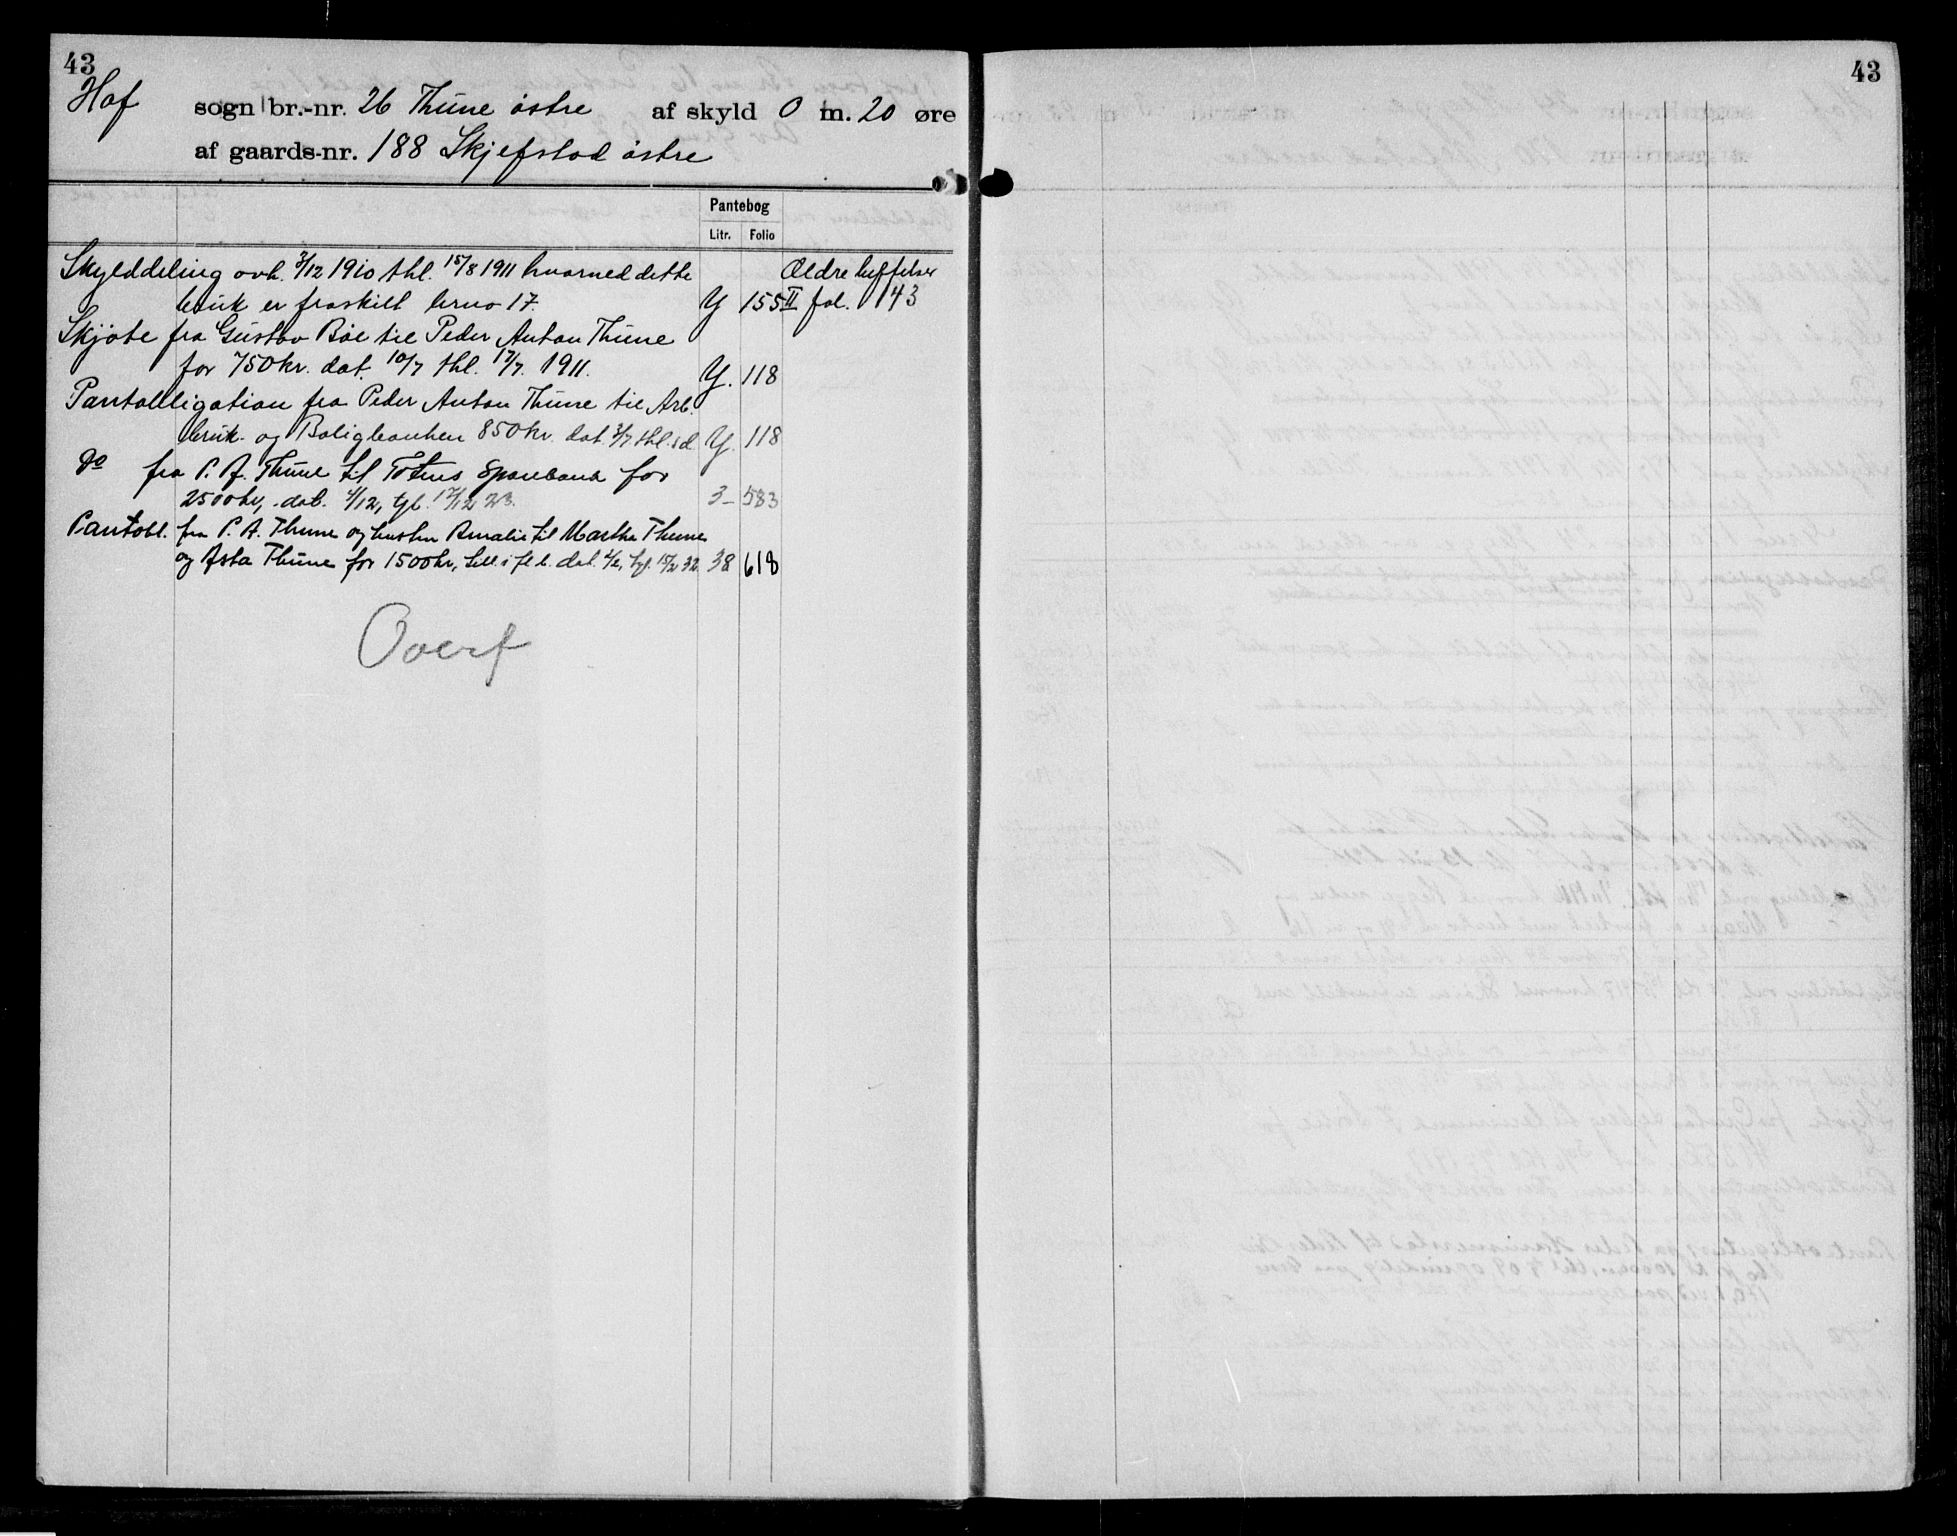 43
43
Hof sogn br.-nr. 26 Thune østre af skyld 0 m. 20 øre
af gaards-nr. 188 Skjefstad østre
Pantebog
Litr. Folio
Skylddeling avh. 3/12 1910 thl. 15/8 1911 hvorved dette Ældre heftelser
bruk er fraskilt brno 17. Y 155 II fol. 143
Skjøte fra Gustav Bøe til Peder Anton Thune
for 750 kr. dat. 10/7 thl. 17/7. 1911. Y. 118
Pantobligation fra Peder Anton Thune til Arb.
bruk- og Boligbanken 850 kr. dat. 3/7 thl. s.d. Y. 118
Do fra P. A. Thune til Totens Sparebank for
2500 kr, dat. 4/12, tgl. 17/12 23. 3- 583
Pantobl. fra P. A. Thune og hustru Amalie til Marthe Thune
og Asta Thune for 1500 kr, dat. tgl. 15/2 32. 38 618
Overf